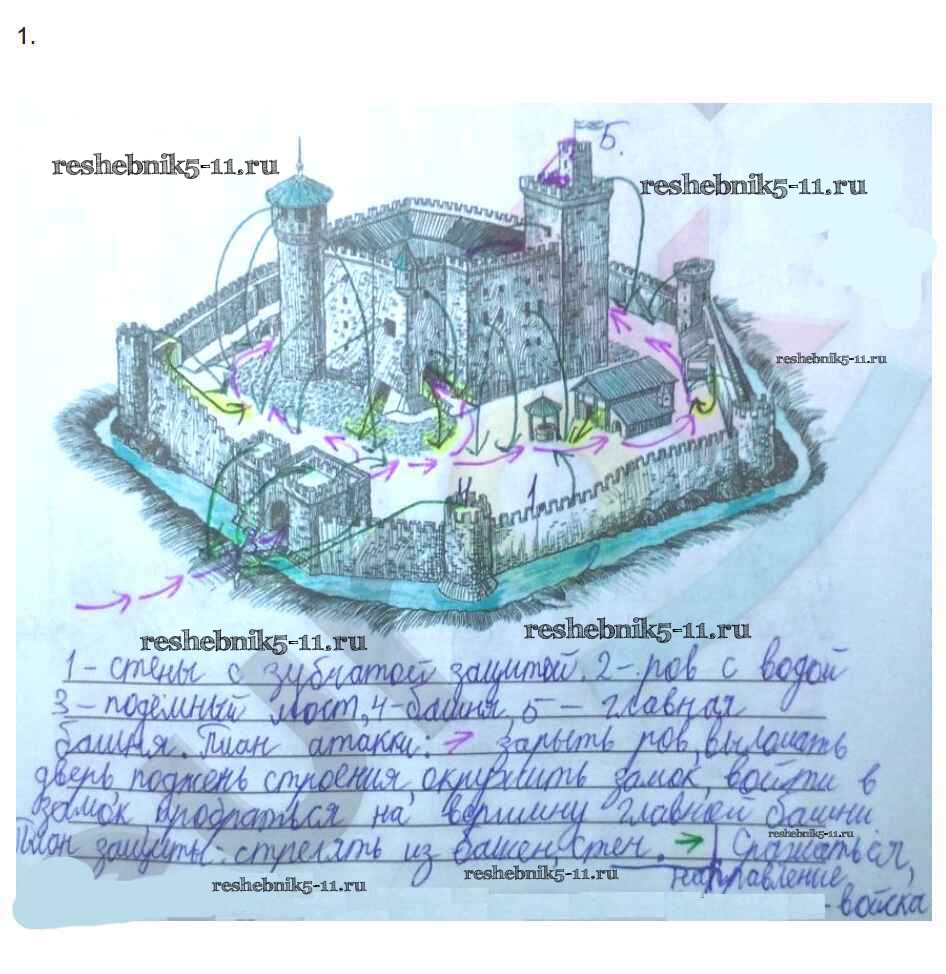 1.
5.
reshebnik5-11.ru
reshebnik5-11.ru
reshebnik5-11.ru
4
1
3
2
reshebnik5-11.ru
reshebnik5-11.ru
1 - стены с зубчатой защитой. 2 - ров с водой
3 - подёмный мост, 4 - башня, 5 - главная
башня. План атакки: → зарыть ров, выломать
дверь, поджень строения, окружить замок, войти в
замок, пробраться на вершину главной башни
reshebnik5-11.ru
План защиты: стрелять из башен, стен. → Сражаться,
reshebnik5-11.ru
reshebnik5-11.ru
направление
войска